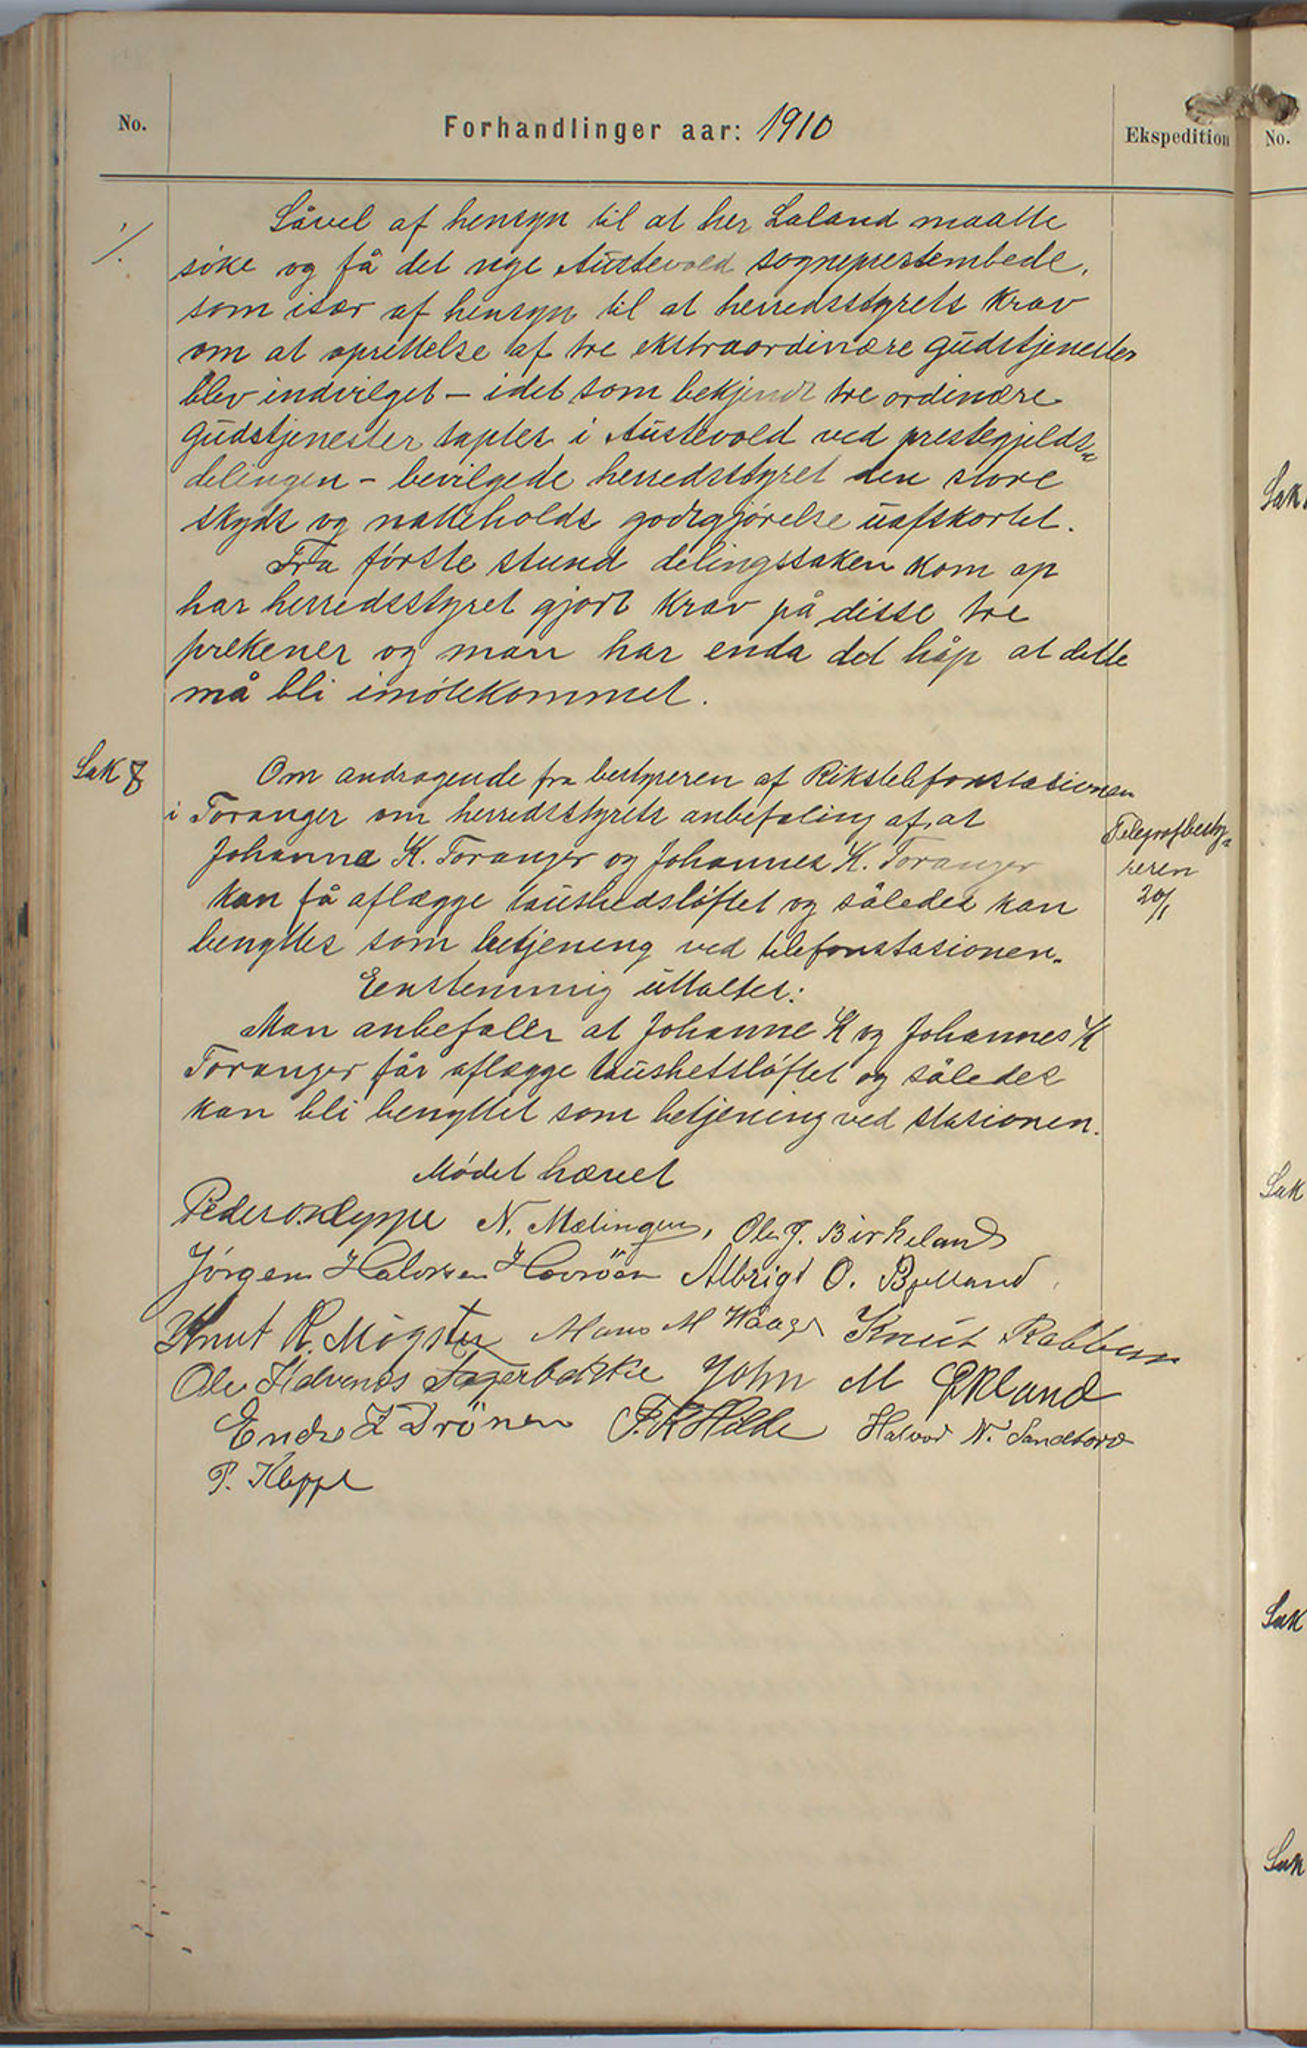 No.
Forhandlinger aar: 1910
Ekspedition
No.
·/.
Såvel af hensyn til at her Laland maatte
söke og få det nye Austevold sogneprestembede,
som især af hensyn til at herredsstyrets krav
om at oprettelse af tre ekstraordinære gudstjenester
blev indvilget – idet som bekjendt tre ordinære
gudstjenester taptes i Austevold ved prestegjelds-
delingen – bevilgede herredsstyret den store
skyds og natteholds godtgjörelse uafskortet.
Fra förste stund delingssaken kom op
har herredsstyret gjort krav på disse tre
prekener og man har enda det håp at dette
må bli imötekommet.
Sak 8
Om andragende fra bestyreren af Rikstelefonstasionen
i Toranger om herredsstyrets anbefaling af, at
Johanne K. Toranger og Johannes K. Toranger
kan få aflægge taushedslöftet og således kan
benyttes som betjening ved telefonstasionen.
Telegrafbesty-
reren
20/1
Eenstemmig uttaltes:
Man anbefaler at Johanne K og Johannes K
Toranger får aflægge taushetslöftet og således
kan bli benyttet som betjening ved stasionen.
Mödet hævet
Peder O. Kleppe N. Mælingen, Ole J. Birkeland
Jörgen Halvorsen Hovröen Albrigt O. Bjelland
Knut R. Mögster Mons M Waage Knut Rabben
Ole Halvensös Fagerbakke John M Økland
Endre I Drönen P. K Hilde Halvor N. Sandtorv
P. Kleppe
Sak
Sak
Sak
Sak